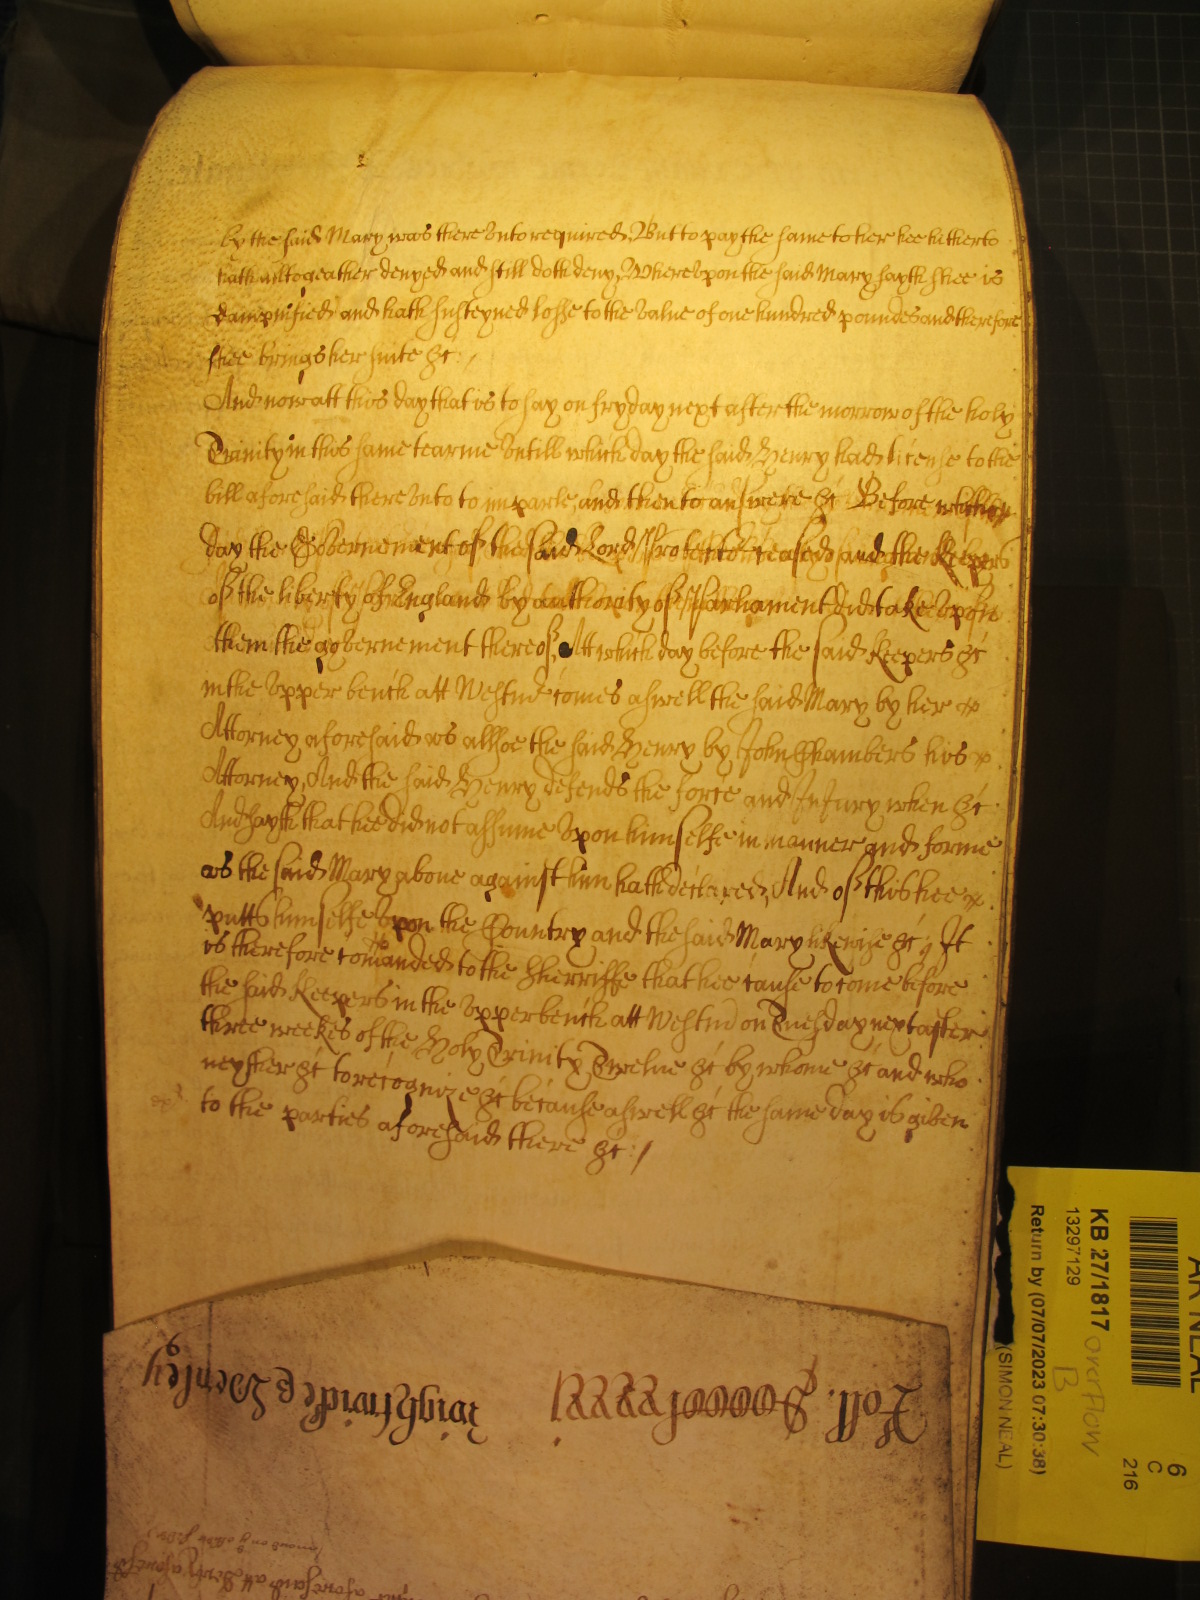 by the said Mary was there unto required, But to pay the same to her hee hitherto
hath altogeather denyed and still doth deny, Whereupon the said Mary sayth shee is
dampnified and hath susteyned losse to the value of one hundred poundes and therefore
shee brings her suite &c:/
And now att this day that is to say on fryday next after the morrow of the holy
Trinity in this same tearme untill which day the said Henry had license to the
bill aforesaid there unto to imparle, and then to answere &c Before which
day the Governement of the said Lord Protector ceased and the Keepers
of the liberty of England by authority of Parliament did take upon
them the governement thereof, Att which day before the said Keepers &c
in the upper bench att Westmr comes aswell the said Mary by her
Attorney aforesaid as allsoe the said Henry by John Chambers his
Attorney, And the said Henry defends the force and Injury when &c
And sayth that hee did not assume upon himselfe in manner and forme
as the said Mary above against him hath declared, And of this hee
putts himselfe upon the Country and the said Mary likewise &c, It
is therefore comanded to the Sherriffe that hee cause to come before
the said Keepers in the upper bench att Westmr on Tuesday next after
three weekes of the Holy Trinity Twelve &c by whome &c and who
neyther &c to recognize &c because aswell &c the same day is given
to the parties aforesaid there &c:/
Roll.
Wightwicke & Henley
aforesaid att
KB 27/1817
13297129
Return by (07/07/2023 07:30:38)
(SIMON NEAL)
overflow
B
6
C
216